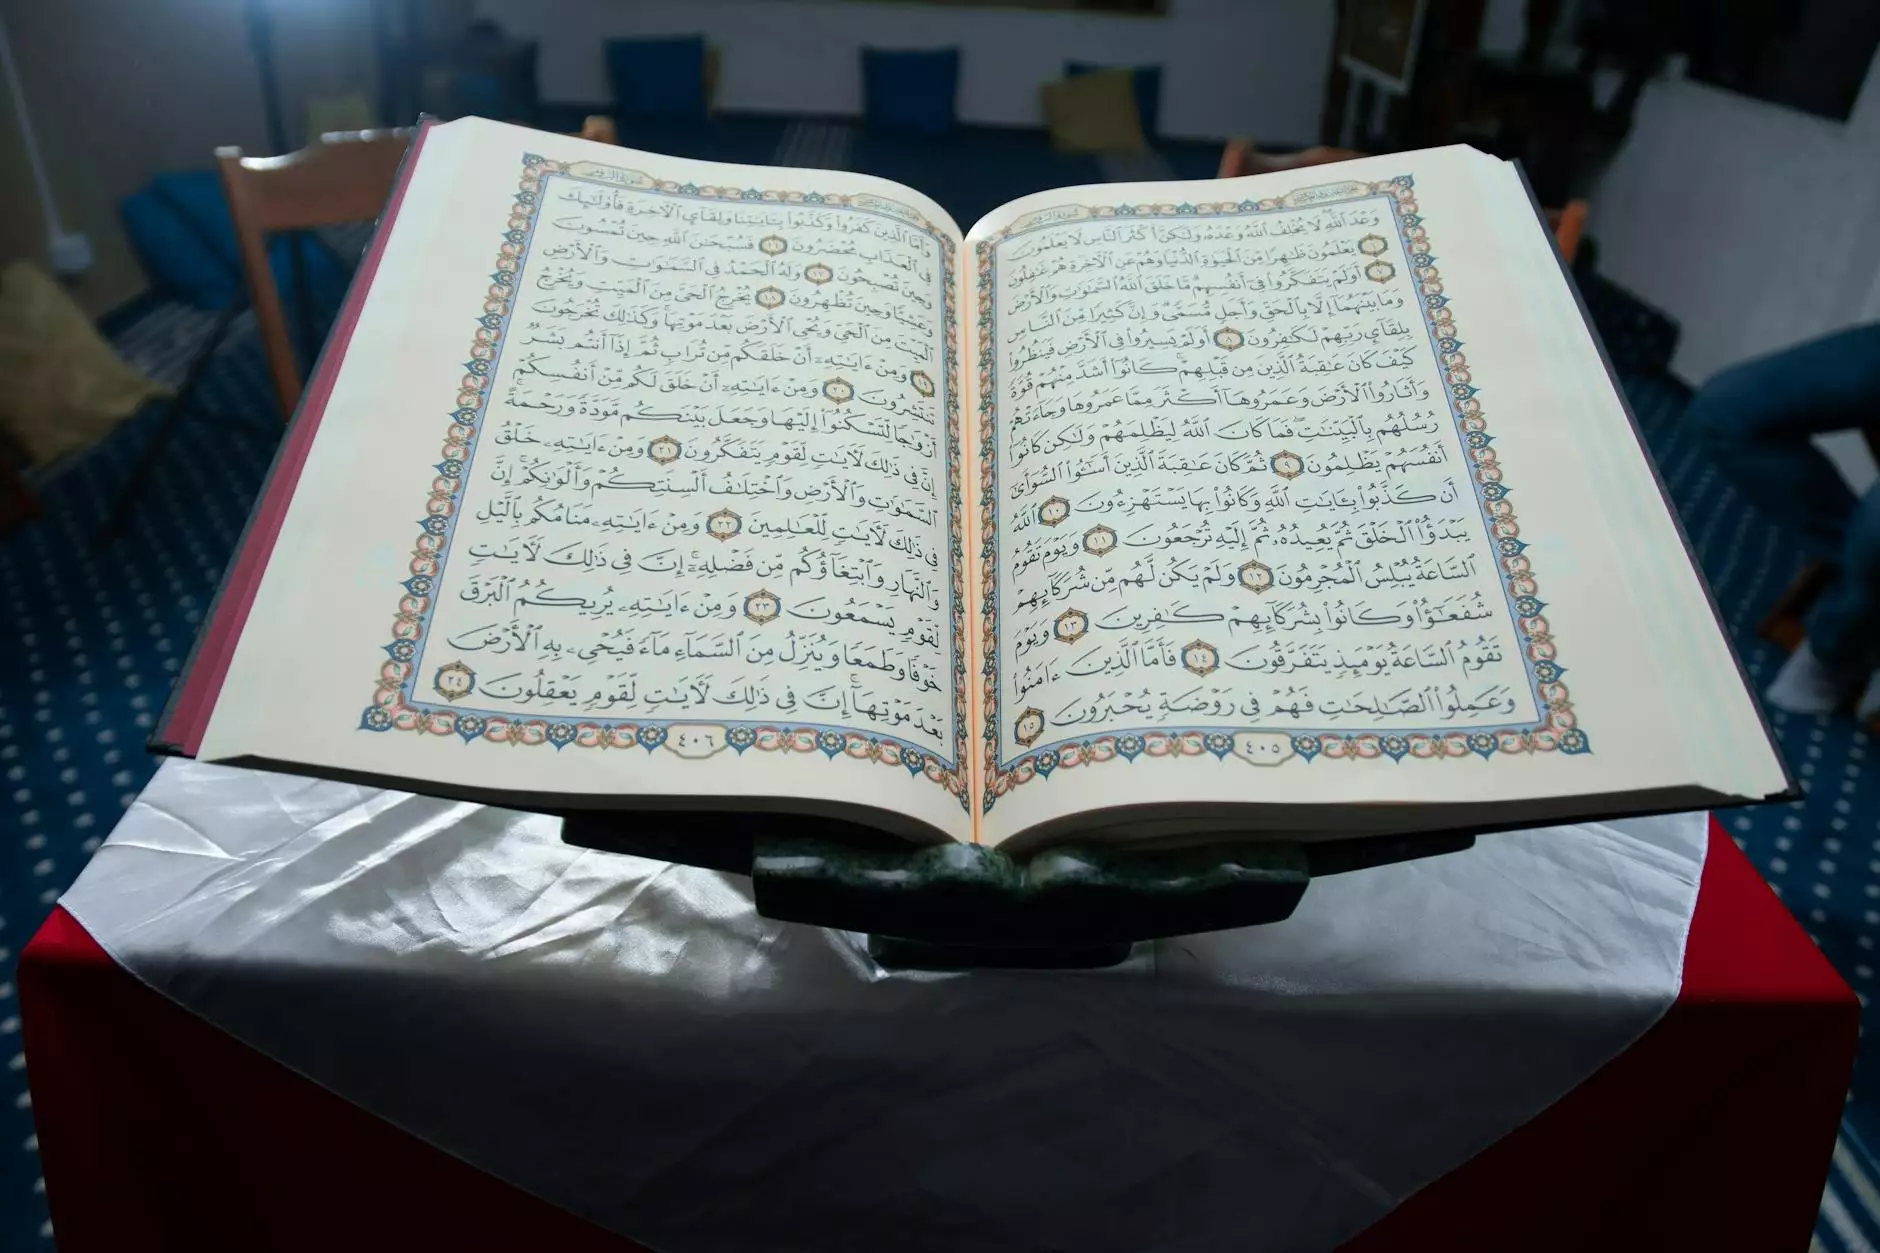 سورة الروم
وَعْدَ ٱللَّهِ لَا يُخْلِفُ ٱللَّهُ وَعْدَهُۥ وَلَٰكِنَّ أَكْثَرَ ٱلنَّاسِ لَا يَعْلَمُونَ
٦ يَعْلَمُونَ ظَٰهِرًا مِّنَ ٱلْحَيَوٰةِ ٱلدُّنْيَا وَهُمْ عَنِ ٱلْءَاخِرَةِ هُمْ غَٰفِلُونَ
٧ أَوَلَمْ يَتَفَكَّرُوا۟ فِىٓ أَنفُسِهِم مَّا خَلَقَ ٱللَّهُ ٱلسَّمَٰوَٰتِ وَٱلْأَرْضَ
وَمَا بَيْنَهُمَآ إِلَّا بِٱلْحَقِّ وَأَجَلٍ مُّسَمًّى وَإِنَّ كَثِيرًا مِّنَ ٱلنَّاسِ
بِلِقَآئِ رَبِّهِمْ لَكَٰفِرُونَ ٨ أَوَلَمْ يَسِيرُوا۟ فِى ٱلْأَرْضِ فَيَنظُرُوا۟
كَيْفَ كَانَ عَٰقِبَةُ ٱلَّذِينَ مِن قَبْلِهِمْ كَانُوٓا۟ أَشَدَّ مِنْهُمْ قُوَّةً
وَأَثَارُوا۟ ٱلْأَرْضَ وَعَمَرُوهَآ أَكْثَرَ مِمَّا عَمَرُوهَا وَجَآءَتْهُمْ
رُسُلُهُم بِٱلْبَيِّنَٰتِ فَمَا كَانَ ٱللَّهُ لِيَظْلِمَهُمْ وَلَٰكِن كَانُوٓا۟
أَنفُسَهُمْ يَظْلِمُونَ ٩ ثُمَّ كَانَ عَٰقِبَةَ ٱلَّذِينَ أَسَٰٓـُٔوا۟ ٱلسُّوٓأَىٰٓ
أَن كَذَّبُوا۟ بِـَٔايَٰتِ ٱللَّهِ وَكَانُوا۟ بِهَا يَسْتَهْزِءُونَ ١٠ ٱللَّهُ
يَبْدَؤُا۟ ٱلْخَلْقَ ثُمَّ يُعِيدُهُۥ ثُمَّ إِلَيْهِ تُرْجَعُونَ ١١ وَيَوْمَ تَقُومُ
ٱلسَّاعَةُ يُبْلِسُ ٱلْمُجْرِمُونَ ١٢ وَلَمْ يَكُن لَّهُم مِّن شُرَكَآئِهِمْ
شُفَعَٰٓؤُا۟ وَكَانُوا۟ بِشُرَكَآئِهِمْ كَٰفِرِينَ ١٣ وَيَوْمَ
تَقُومُ ٱلسَّاعَةُ يَوْمَئِذٍ يَتَفَرَّقُونَ ١٤ فَأَمَّا ٱلَّذِينَ ءَامَنُوا۟
وَعَمِلُوا۟ ٱلصَّٰلِحَٰتِ فَهُمْ فِى رَوْضَةٍ يُحْبَرُونَ ١٥
٤٠٥
سورة الروم
وَأَمَّا ٱلَّذِينَ كَفَرُوا۟ وَكَذَّبُوا۟ بِـَٔايَٰتِنَا وَلِقَآئِ ٱلْءَاخِرَةِ فَأُو۟لَٰٓئِكَ
فِى ٱلْعَذَابِ مُحْضَرُونَ ١٦ فَسُبْحَٰنَ ٱللَّهِ حِينَ تُمْسُونَ
وَحِينَ تُصْبِحُونَ ١٧ وَلَهُ ٱلْحَمْدُ فِى ٱلسَّمَٰوَٰتِ وَٱلْأَرْضِ
وَعَشِيًّا وَحِينَ تُظْهِرُونَ ١٨ يُخْرِجُ ٱلْحَىَّ مِنَ ٱلْمَيِّتِ وَيُخْرِجُ
ٱلْمَيِّتَ مِنَ ٱلْحَىِّ وَيُحْىِ ٱلْأَرْضَ بَعْدَ مَوْتِهَا وَكَذَٰلِكَ تُخْرَجُونَ
١٩ وَمِنْ ءَايَٰتِهِۦٓ أَنْ خَلَقَكُم مِّن تُرَابٍ ثُمَّ إِذَآ أَنتُم بَشَرٌ
تَنتَشِرُونَ ٢٠ وَمِنْ ءَايَٰتِهِۦٓ أَنْ خَلَقَ لَكُم مِّنْ أَنفُسِكُمْ
أَزْوَٰجًا لِّتَسْكُنُوٓا۟ إِلَيْهَا وَجَعَلَ بَيْنَكُم مَّوَدَّةً وَرَحْمَةً
إِنَّ فِى ذَٰلِكَ لَءَايَٰتٍ لِّقَوْمٍ يَتَفَكَّرُونَ ٢١ وَمِنْ ءَايَٰتِهِۦ خَلْقُ
ٱلسَّمَٰوَٰتِ وَٱلْأَرْضِ وَٱخْتِلَٰفُ أَلْسِنَتِكُمْ وَأَلْوَٰنِكُمْ إِنَّ
فِى ذَٰلِكَ لَءَايَٰتٍ لِّلْعَٰلِمِينَ ٢٢ وَمِنْ ءَايَٰتِهِۦ مَنَامُكُم بِٱلَّيْلِ
وَٱلنَّهَارِ وَٱبْتِغَآؤُكُم مِّن فَضْلِهِۦٓ إِنَّ فِى ذَٰلِكَ لَءَايَٰتٍ
لِّقَوْمٍ يَسْمَعُونَ ٢٣ وَمِنْ ءَايَٰتِهِۦ يُرِيكُمُ ٱلْبَرْقَ
خَوْفًا وَطَمَعًا وَيُنَزِّلُ مِنَ ٱلسَّمَآءِ مَآءً فَيُحْىِۦ بِهِ ٱلْأَرْضَ
بَعْدَ مَوْتِهَآ إِنَّ فِى ذَٰلِكَ لَءَايَٰتٍ لِّقَوْمٍ يَعْقِلُونَ ٢٤
٤٠٦